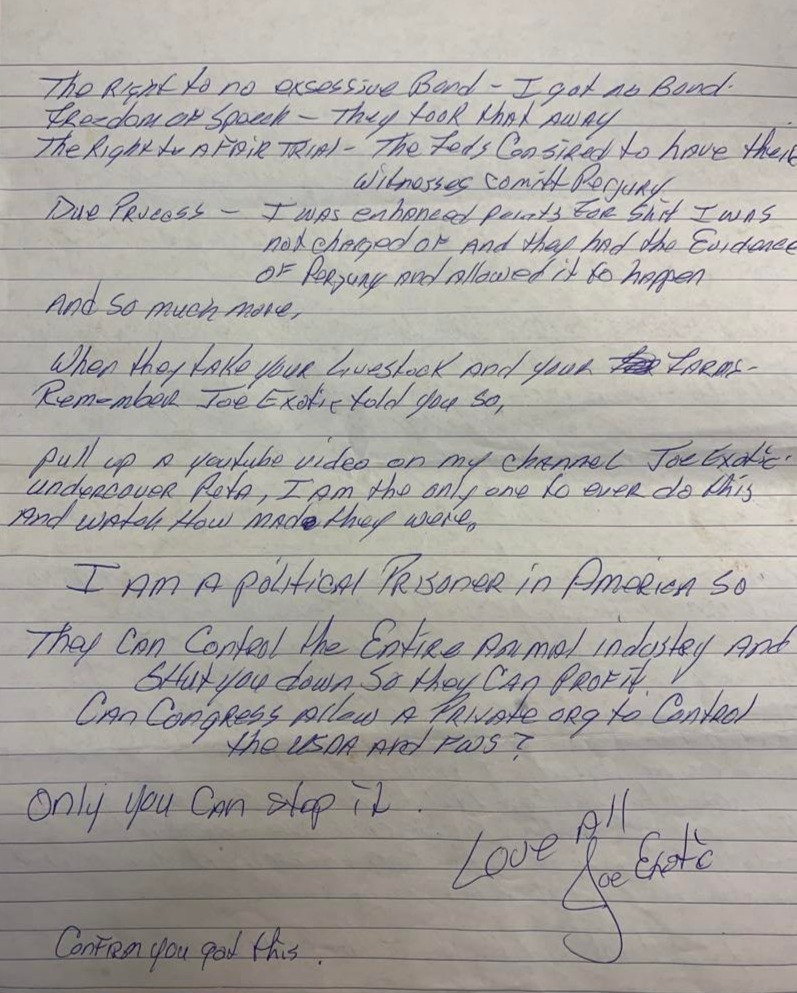 The Right to no excessive Bond - I got no Bond.
Freedom of Speech - They took that away
The Right to A FAIR TRIAL - The Feds Consired to have their
Witnesses comitt Perjury
Due Process - I was enhanced points for shit I was
not charged of and they had the Evidence
of Perjury and allowed it to happen
And so much more,
When they take your livestock and your Farms-
Remember Joe Exotic told you so,
Pull up a youtube video on my channel Joe Exotic.
undercover Peta, I am the only one to ever do this
And watch How mad they were.
I AM A political Prisoner in America so
They Can Control the Entire Animal industry And
SHut you down So they CAn Profit.
CAn Congress Allow A Private org to Control
the USDA And FWS?
Only you CAn stop it.
Love All
Joe Exotic
Confirm you got this.